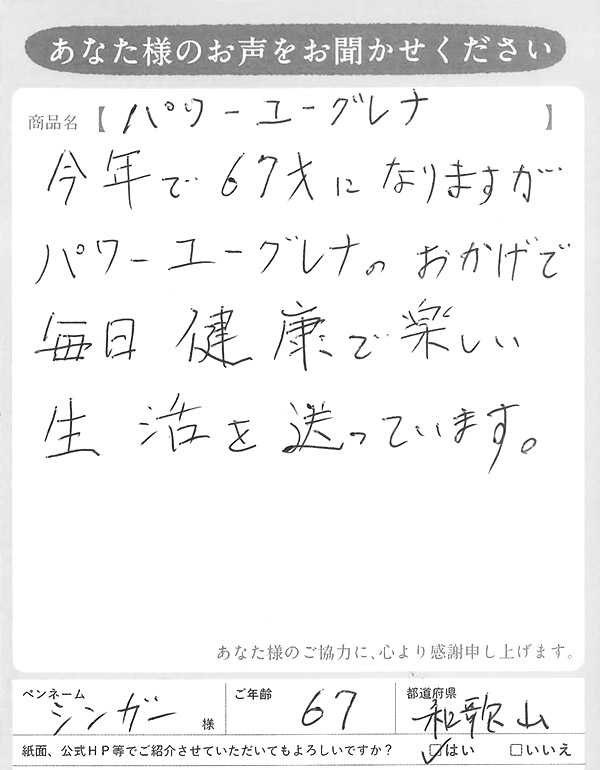 あなた様のお声をお聞かせください
商品名【 パワーユーグレナ 】
今年で67才になりますが
パワーユーグレナのおかげで
毎日健康で楽しい
生活を送っています。
あなた様のご協力に、心より感謝申し上げます。
ペンネーム シンガー 様 ご年齢 67 都道府県 和歌山
紙面、公式HP等でご紹介させていただいてもよろしいですか? ☑はい □いいえ